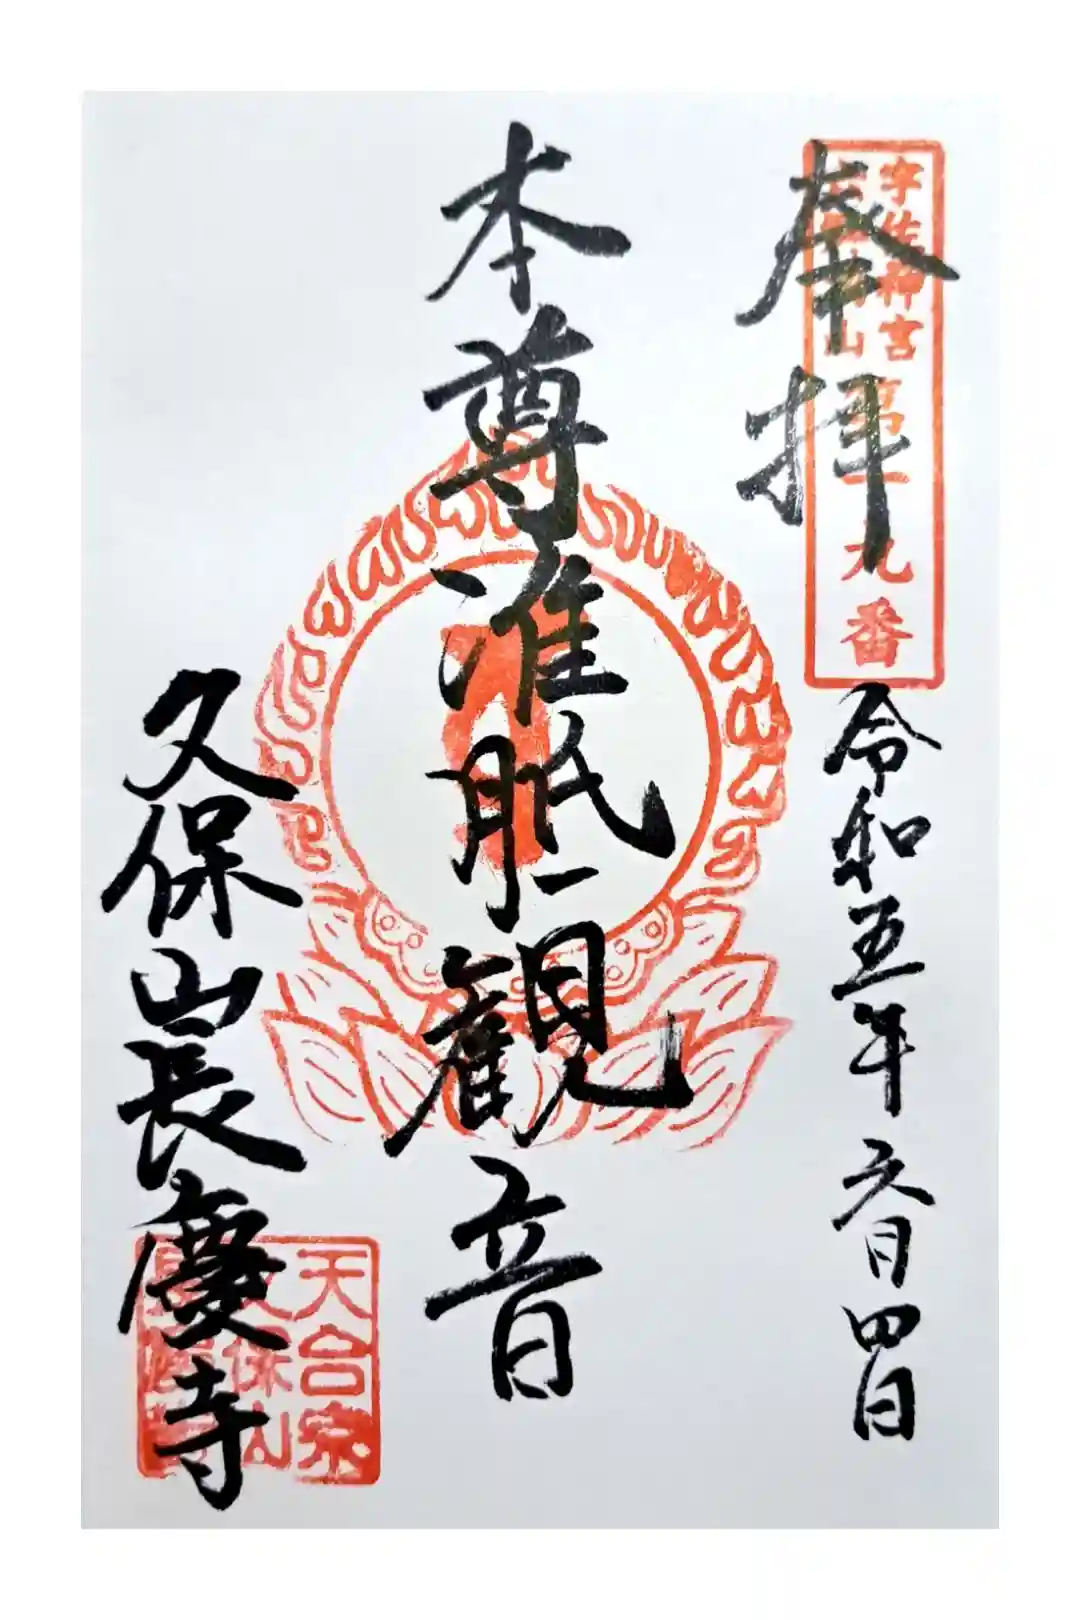 奉拝
宇佐神宮
第十九番
令和五年六月四日
本尊准胝観音
久保山長慶寺
天台宗
久保山
長慶寺